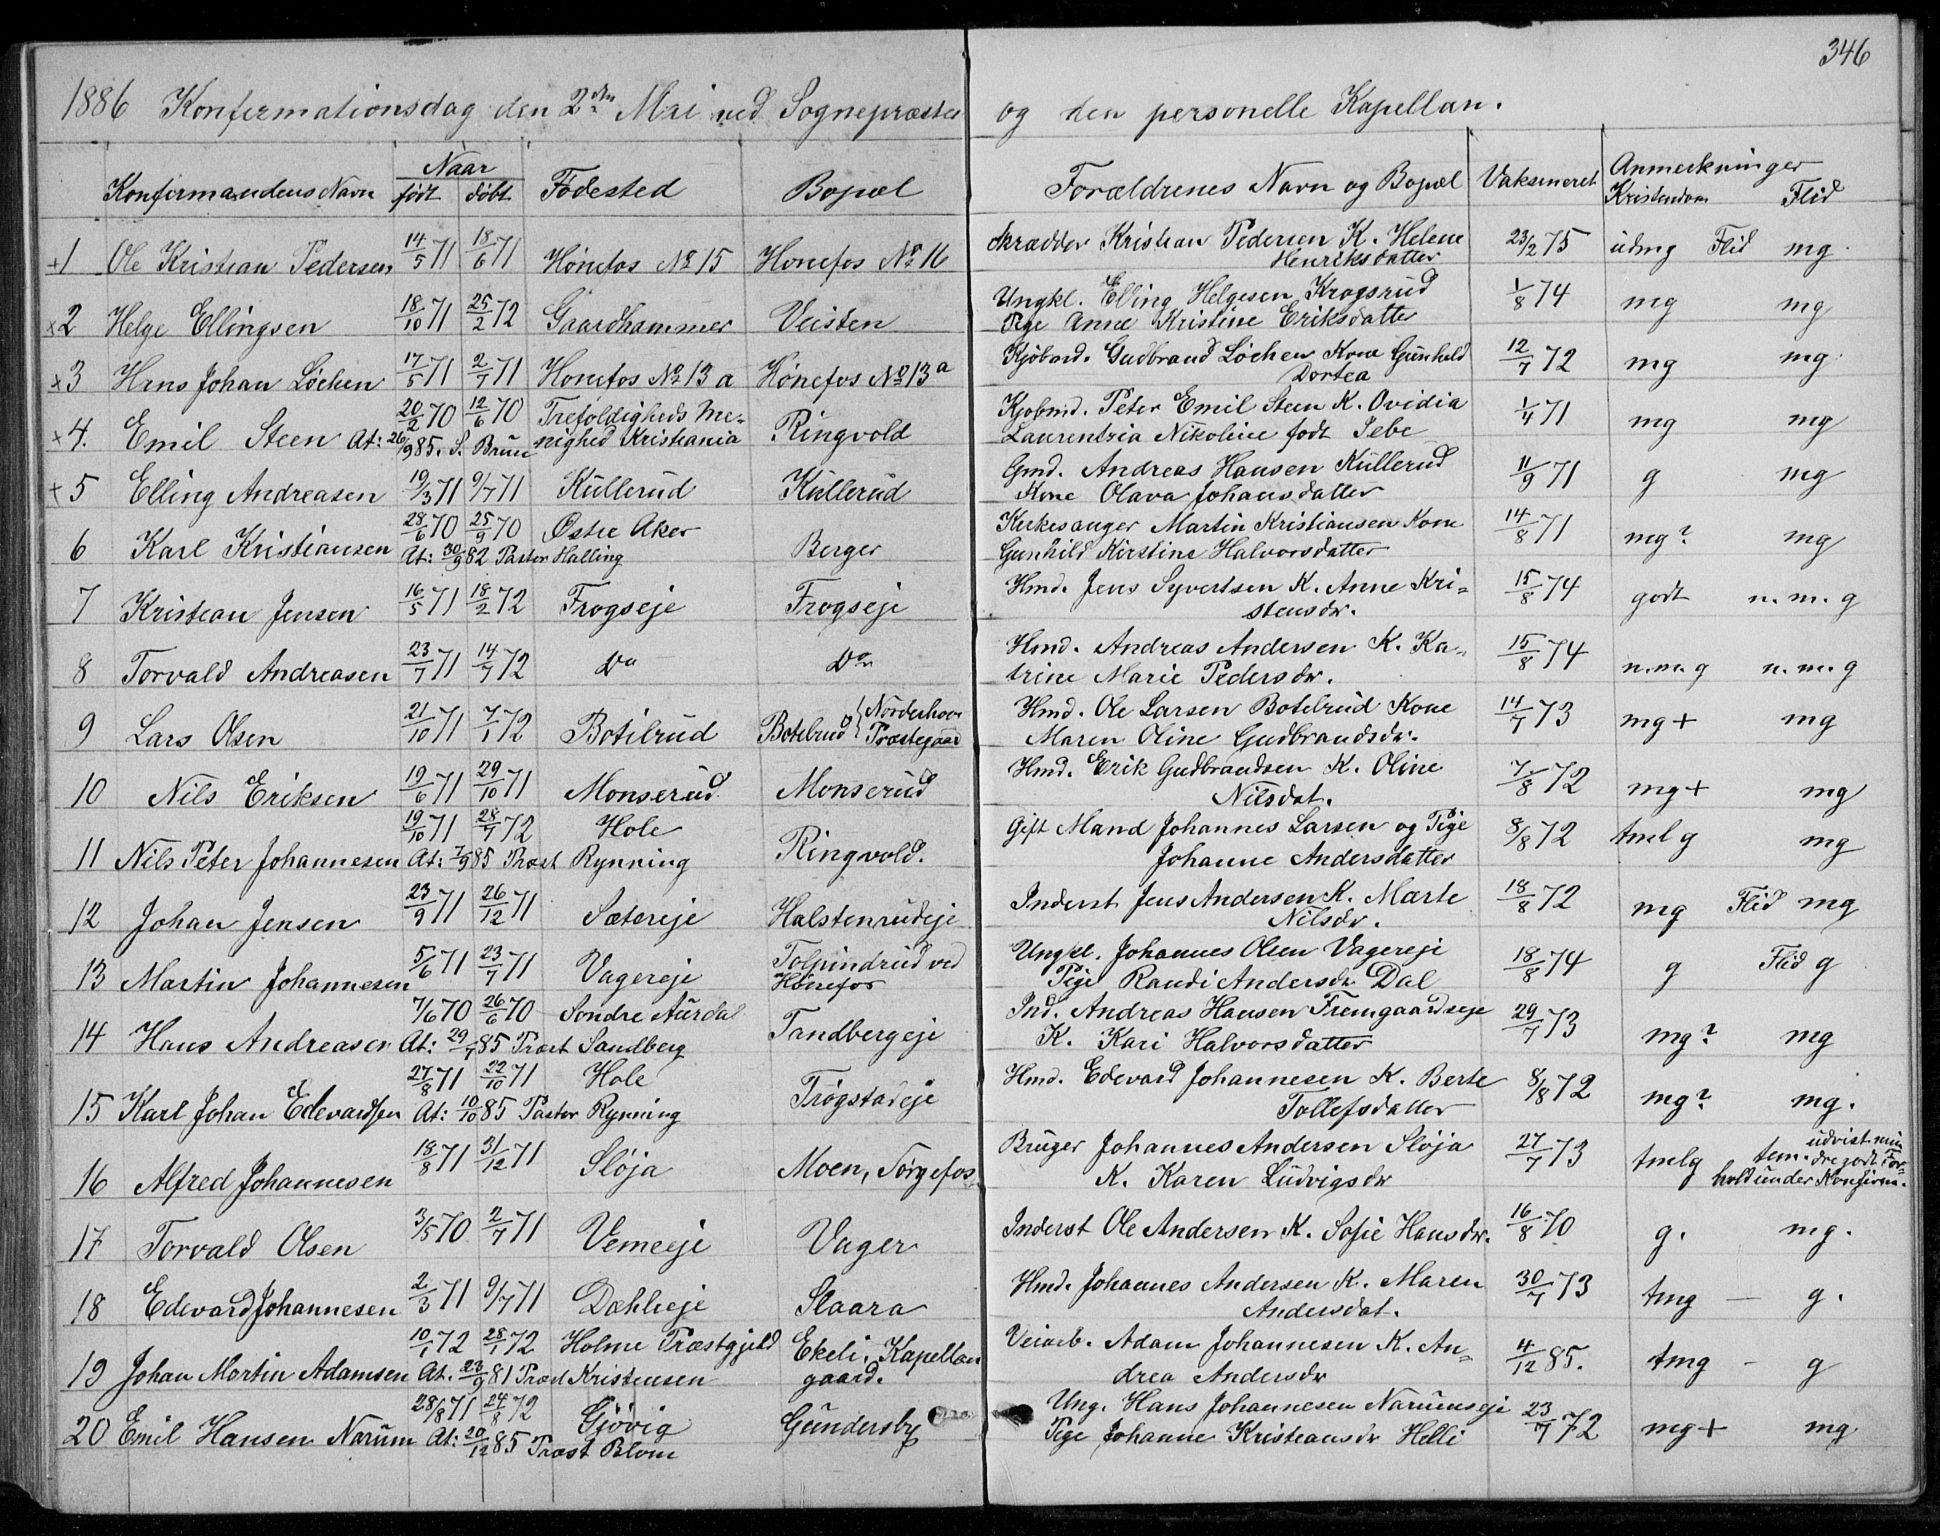 346
1886 Konfirmationsdag den 2den Mai ved Sognepræsten og den personelle Kapellan.
Konfirmandens Navn | Naar født | døbt | Fødested | Bopæl | Forældrenes Navn og Bopæl | Vaksineret | Anmerkninger Kristendom | Flid
+1 Ole Kristian Pedersen 14/5 71 18/6 71 Hønefos No 15 Hønefos No 16 Skrædder Kristian Pedersen K. Helene 23/2 75 udmg Flid mg.
Henriksdatter
x2 Helge Ellingsen 18/10 71 25/2 72 Gaardhammer Veisten Ungkl. Elling Helgesen Krogsrud 1/8 74 mg mg
Pige Anne Kristine Eriksdatter
x3 Hans Johan Løchen 17/5 71 2/7 71 Hønefos No 13 a Hønefos No 13 a Kjøbmd. Gudbrand Løchen Kone Gunhild 12/7 72 mg mg.
Dortea
x4. Emil Steen 20/2 70 12/6 70 Trefoldigheds Me- Ringvold Kjøbmd. Peter Emil Steen K. Ovidia 1/4 71 mg mg
At: 26/9 85. S. Bruun nighed Kristiania Laurentzia Nikoline født Sebe
+5 Elling Andreasen 19/3 71 9/7 71 Kullerud Kullerud Gmd. Andreas Hansen Kullerud 11/9 71 g mg
Kone Olava Johansdatter
6 Karl Kristiansen 28/6 70 25/9 70 Østre Aker Berger Kirkesanger Martin Kristiansen Kone 14/8 71 mg? mg
At: 30/9 82 Pastor Halling Gunhild Kirstine Halvorsdatter
7 Kristian Jensen 16/5 71 18/2 72 Frogseje Frogseje Hmd. Jens Syvertsen K. Anne Kri- 15/8 74 godt n. m. g
stensdr.
8 Torvald Andreasen 23/7 71 14/7 72 Do Do Hmd. Andreas Andersen K. Ka- 15/8 74 n. m. g n. m. g
trine Marie Pedersdr.
9 Lars Olsen 21/10 71 7/1 72 Botilrud Botilrud { Norderhov Præstegaard Hmd. Ole Larsen Botilrud Kone 14/7 73 mg+ mg
Maren Oline Gudbrandsdr.
10 Nils Eriksen 19/6 71 29/10 71 Monserud Monserud Hmd. Erik Gudbrandsen K. Oline 7/8 72 mg+ mg
Nilsdat.
11 Nils Peter Johannesen 19/10 71 28/7 72 Hole Ringvold. Gift Mand Johannes Larsen og Pige 8/8 72 tmlg mg
At: 7/9 85 Præst Rynning Johanne Andersdatter
12 Johan Jensen 23/9 71 26/12 71 Sætereje Halstenrudeje Inderst Jens Andersen K. Marte 18/8 72 mg Flid mg
Nilsdr.
13 Martin Johannesen 5/6 71 23/7 71 Vagereje Tolpindrud ved Hønefos Ungkl. Johannes Olsen Vagereje 18/8 74 g Flid g
Pige Randi Andersdr Dal
14 Hans Andreasen 7/6 70 26/6 70 Søndre Aurdal Tandbergeje Ind. Andreas Hansen Fremgaardseje 29/7 73 mg? mg
At: 29/7 85 Præst Sandberg K. Kari Halvorsdatter
15 Karl Johan Edevardsen 27/8 71 22/10 71 Hole Trøgstadeje Hmd. Edevard Johannesen K. Berte 8/8 72 mg? mg.
At: 10/10 85 Pastor Rynning Tollefsdatter
16 Alfred Johannesen 18/8 71 31/12 71 Sløja Moen, Sørgefos Bruger Johannes Andersen Sløja 27/7 73 tmlg tem. udvist min dre godt For-
K. Karen Ludvigsdr hold under Konfirm.
17 Torvald Olsen 3/5 70 2/7 71 Vemeeje Vager Inderst Ole Andersen K. Sofie Hansdr. 16/8 70 g. mg.
18 Edevard Johannesen 2/3 71 9/7 71 Dæhlieje Slaara Hmd. Johannes Andersen K. Maren 30/7 73 tmg — g.
Andersdat.
19 Johan Martin Adamsen 10/1 72 28/1 72 Holme Præstgjeld Ekeli, Kapellan Veiarb. Adam Johannesen K. An- 4/12 85. tmg – g
At. 23/9 81 Præst Kristensen gaard. drea Andersdr
20 Emil Hansen Narum 28/8 71 24/8 72 Gjøvig Gundersby Ung. Hans Johannesen Narumseje 23/7 72 mg+ mg
At: 20/12 85 Præst Blom Pige Johanne Kristiansdr Helli